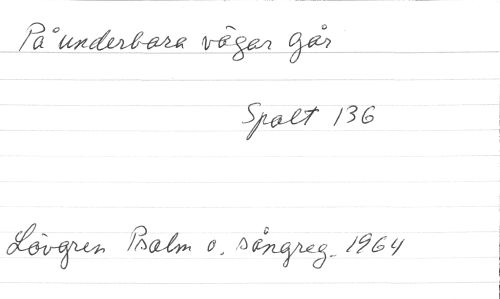 På underbara vägar går
Spalt 136
Lövgren Psalm o. sångreg. 1964